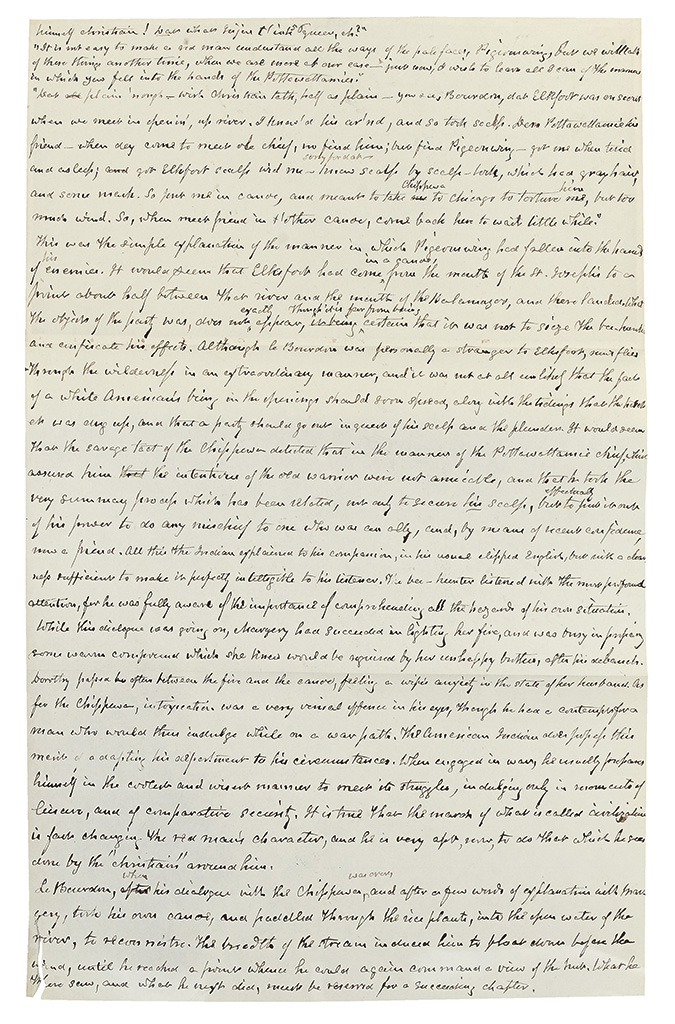 himself christian! Dat what Injin t'ink queer, eh?"
"It is not easy to make a red man understand all the ways of the pale faces, Pigeonswing, but we will talk
of these things another time, when we are more at our ease – just now, I wish to learn all I can of the manner
in which you fell into the hands of the Pottawattamies."
"Dat plain 'nough – wish Christian talk, half as plain – you see, Bourdon, dat Elksfoot was on scout
when we meet in openin', up river. I know'd his ar'nd, and so took scalp. Dem Pottawattamie his
friend – when dey come to meet ole chief, no find him; but find Pigeonswing – got me when tired
and asleep; and got Elksfoot scalp wid me – sorry for dat – know scalp by scalp-lock, which had gray hair,
and some mark. So put me in canoe, and meant to take Chippewa to Chicago to torture him, but too
much wind. So, when meet friend in t'other canoe, come back here to wait little while."
This was the simple explanation of the manner in which Pigeonswing had fallen into the hands
of his enemies. It would seem that Elksfoot had come in a canoe, from the mouth of the St. Joseph's to a
point about half between that river and the mouth of the Kalamazoo, and there landed. What
the objects of the party was, does not exactly appear, though it is far from being certain that it was not to seize the bee-hunter
and confiscate his effects. Although le Bourdon was personally a stranger to Elksfoot, news flies
through the wilderness in an extraordinary manner, and it was not at all unlikely that the fact
of a white American's being in the openings should soon spread, along with the tidings that the hatch-
et was dug up, and that a party should go out in quest of his scalp and the plunder. It would seem
that the savage tact of the Chippewa detected that in the manner of the Pottawattamie chief, which
assured him the intentions of the old warrior were not amicable, and that he took the
very summary process which has been related, not only to secure his scalp, but effectually to put it out
of his power to do any mischief to one who was an ally, and, by means of recent confidence,
now a friend. All this the Indian explained to his companion, in his usual clipped English, but with a clear-
ness sufficient to make it perfectly intelligible to his listener. The bee-hunter listened with the most profound
attention, for he was fully aware of the importance of comprehending all the hazards of his own situation.
While this dialogue was going on, Margery had succeeded in lighting her fire, and was busy in preparing
some warm compound which she knew would be required by her unhappy brother, after his debauch.
Dorothy passed often between the fire and the canoe, feeling a wife's anxiety in the state of her husband. As
for the Chippewa, intoxication was a very venial offence in his eyes, though he had a contempt for a
man who would thus indulge while on a war path. The American Indian does possess this
merit of adapting his deportment to his circumstances. When engaged in war, he usually prepares
himself in the coolest and wisest manner to meet its struggles, indulging only in moments of
leisure, and of comparative security. It is true that the march of what is called civilization
is fast changing the red man's character, and he is very apt, now, to do that which he sees
done by the "christians" around him.
Le Bourdon, when his dialogue with the Chippewa was over, and after a few words of explanation with Mar-
gery, took his own canoe, and paddled through the rice plants, into the open water of the
river, to reconnoitre. The breadth of the stream induced him to float down before the
wind, until he reached a point whence he could again command a view of the hut. What he
there saw, and what he next did, must be reserved for a succeeding chapter.